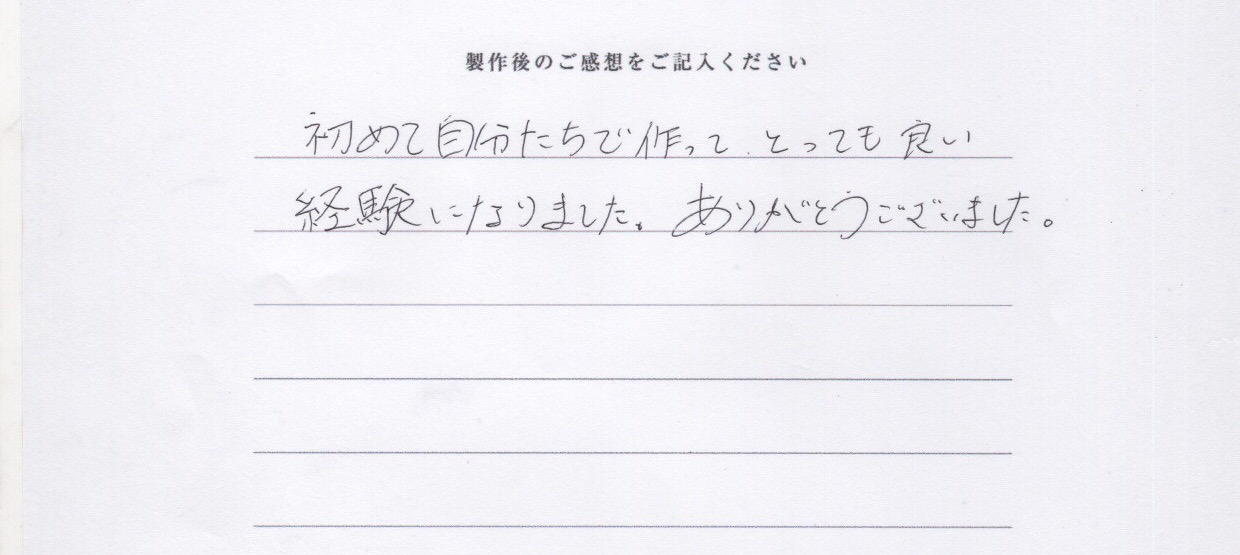 製作後のご感想をご記入ください
初めて自分たちで作って とっても良い
経験になりました。ありがとうございました。